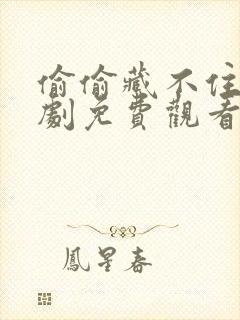 偷偷藏不住
劇免費觀看
鳳星春